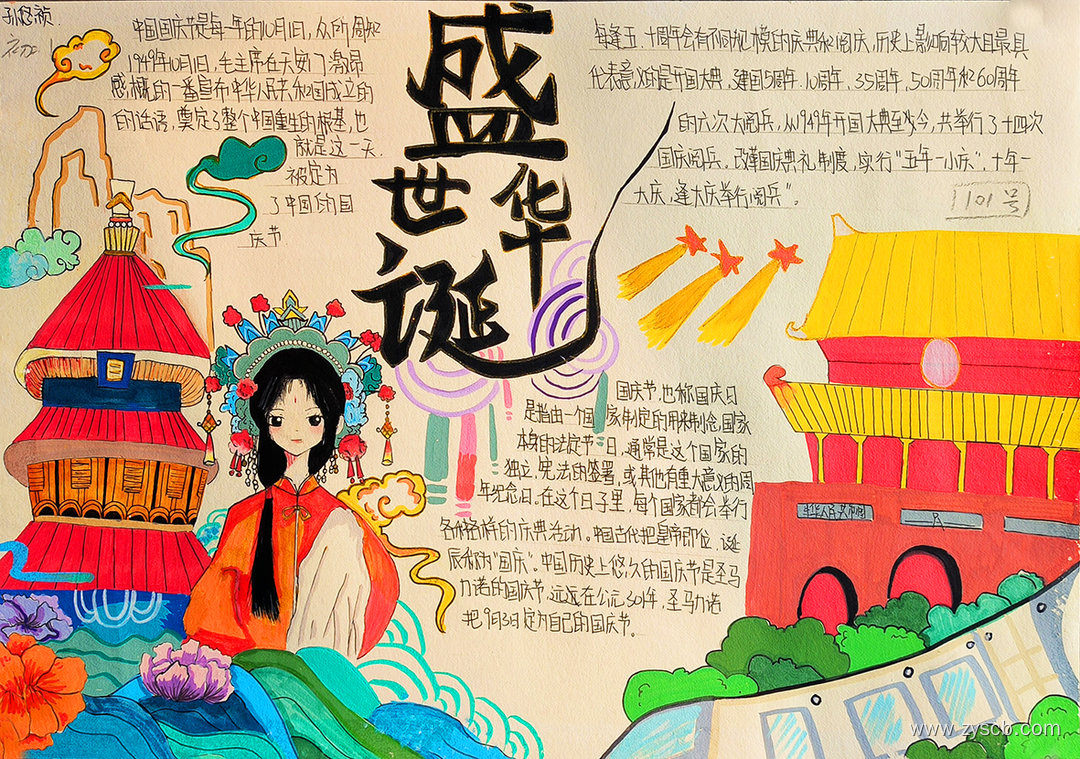 孙悠祯
中国国庆节是每一年的10月1日,众所周知
1949年10月1日,毛主席在天安门激昂
感慨的一番宣布中华人民共和国成立的
的话语,奠定了整个中国重生的根基,也
就是这一天,
被定为
了中国的国
庆节
盛
世华
诞
每逢五、十周年会有不同规模的庆典和阅庆,历史上影响较大且最具
代表意义的是开国大典,建国5周年、10周年、35周年、50周年和60周年
的六次大阅兵,从1949年开国大典至今,共举行了十四次
国庆阅兵。改革国庆典礼制度,实行"五年一小庆、十年一
大庆,逢大庆举行阅兵"。
国庆节,也称国庆日
是指由一个国家制定的用来纪念国家
本身的法定节日,通常是这个国家的
独立、宪法的签署,或其他有重大意义的周
年纪念日。在这个日子里,每个国家都会举行
各式各样的庆典活动。中国古代把皇帝即位、诞
辰称为"国庆"。中国历史上悠久的国庆节是圣马
力诺的国庆节,远远在公元301年,圣马力诺
把9月3日定为自己的国庆节。
中华人民共和国
www.zyscb.com